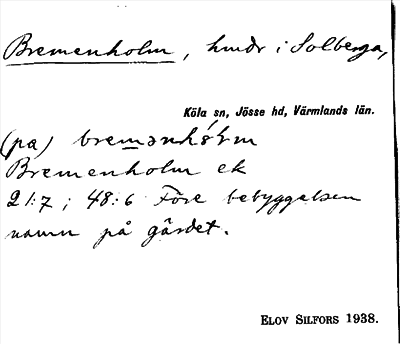 Bremenholm, hmdr i Solberga,
Köla sn, Jösse hd, Värmlands län.
(pa) bremənhólm
Bremenholm ek
21:7 ; 48:6 Före bebyggelsen
namn på gärdet.
ELOV SILFORS 1938.